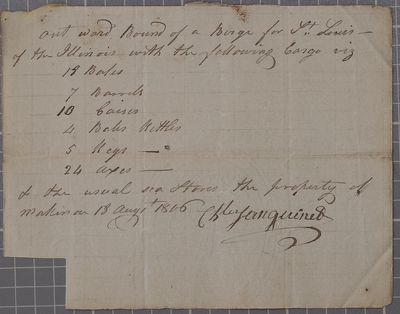 out ward Bound of a Barge for St. Louis —
of the Illinois with the following Cargo viz
19 Bales
7 Barrels
10 Caises
4 Bales Kettles
5 Kegs —
24 axes —
& the usual sea Stores the property of
Makinau 18 Augst 1806 Chs Sanguinet